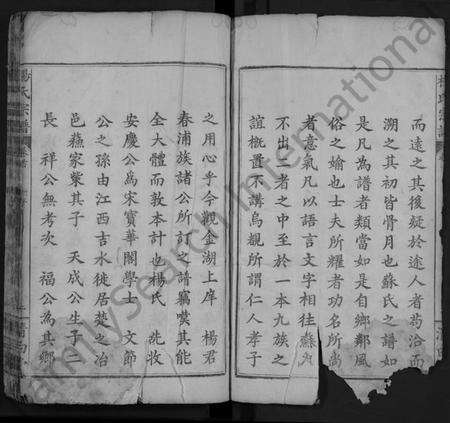 而遠之其後縱於途人者苟洽而
溯之其初皆骨月也蘇氏之譜如
是凡為譜者類當如是自鄉鄰風
俗之媮也士夫所耀者功名所尚
者意氣凡以語言文字相往
不出二者之中至於一本九族之
誼概置不講烏覩所謂仁人孝子
之用心乎今觀金湖上岸 楊君
春浦族諸公所訂之譜竊嘆其能
全大體而敦本計也楊氏 先牧
安慶公為宋寶華閣學士 文節
公之孫由江西吉水徙居楚之冶
邑蘓家塟其子 天成公生子二
長 祥公無考次 福公為其鄉
楊氏宗譜
FamilySearch International